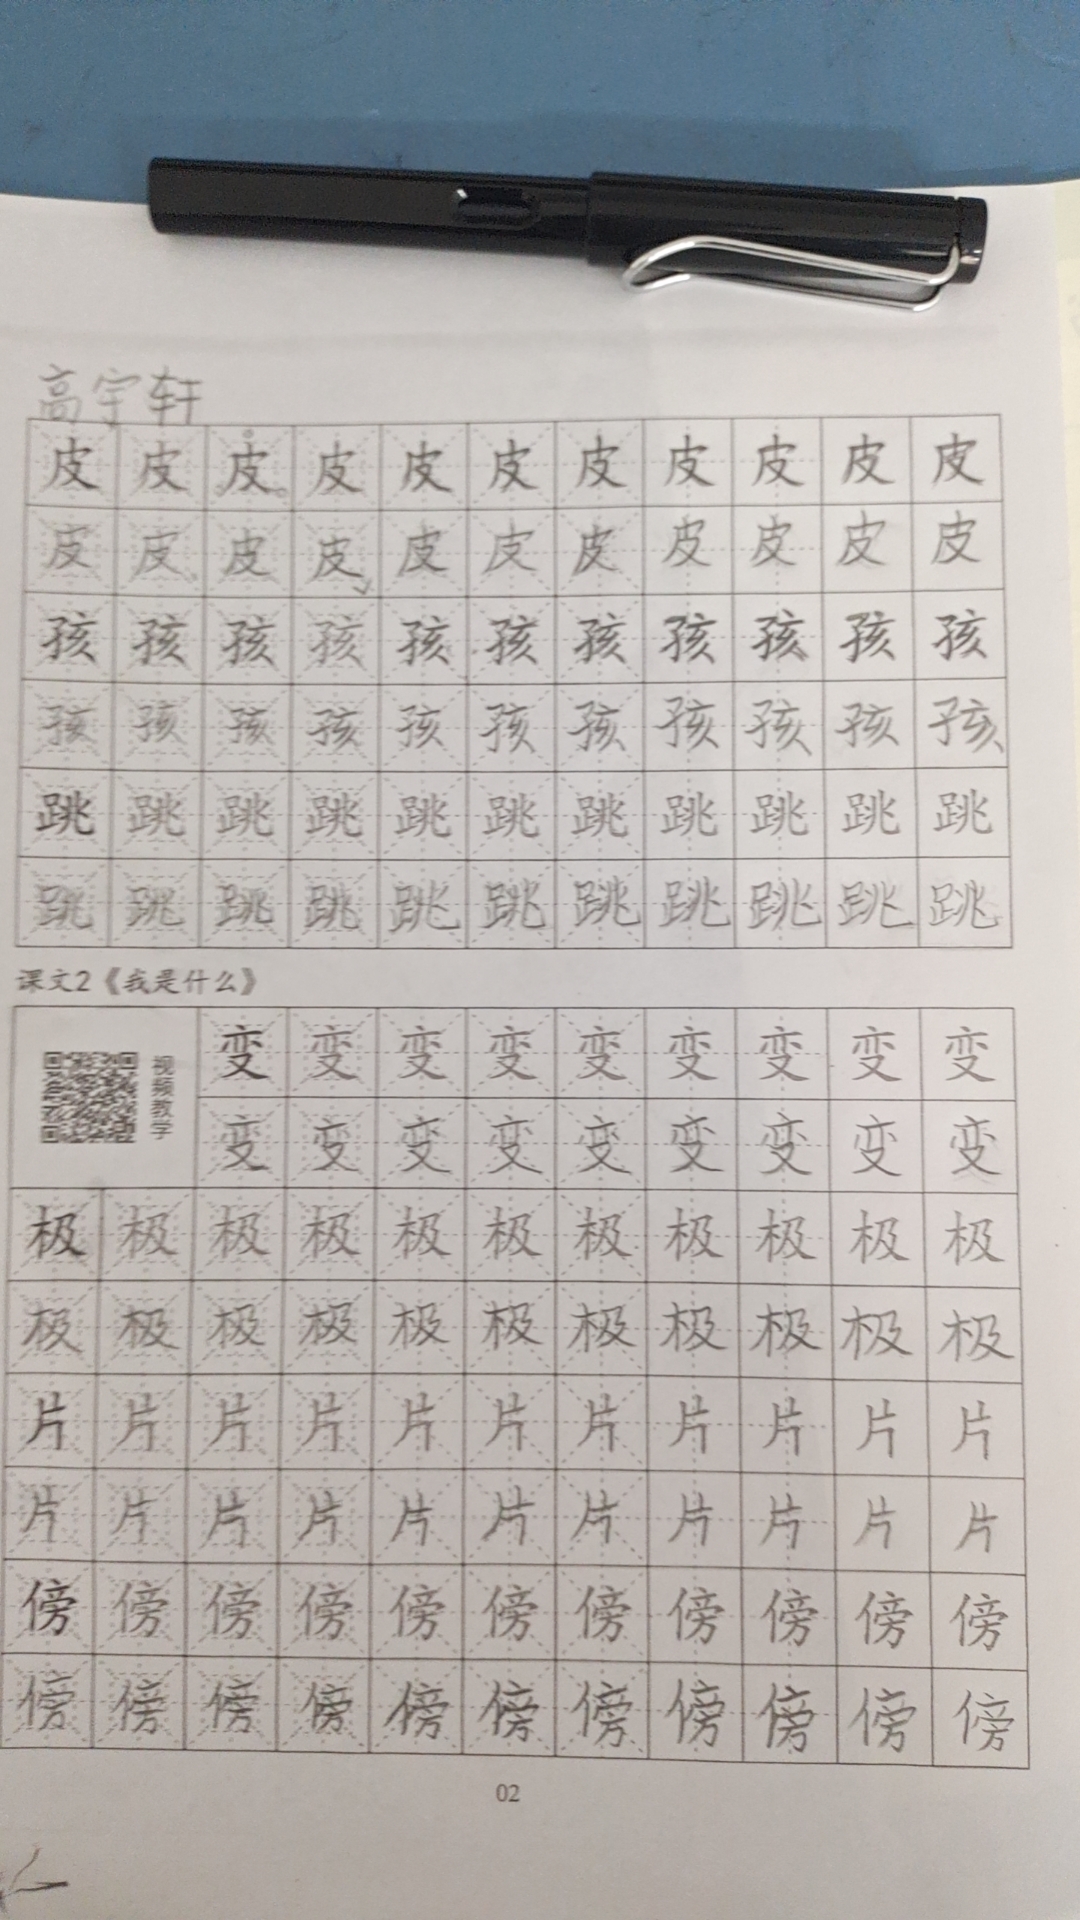 高宇轩
皮皮皮皮皮皮皮皮皮皮皮
皮皮皮皮皮皮皮皮皮皮皮
孩孩孩孩孩孩孩孩孩孩孩
孩孩孩孩孩孩孩孩孩孩孩
跳跳跳跳跳跳跳跳跳跳跳
跳跳跳跳跳跳跳跳跳跳跳
课文2《我是什么》
视频教学
变变变变变变变变变
变变变变变变变变变
极极极极极极极极极极极
极极极极极极极极极极极
片片片片片片片片片片片
片片片片片片片片片片片
傍傍傍傍傍傍傍傍傍傍傍
傍傍傍傍傍傍傍傍傍傍傍
02